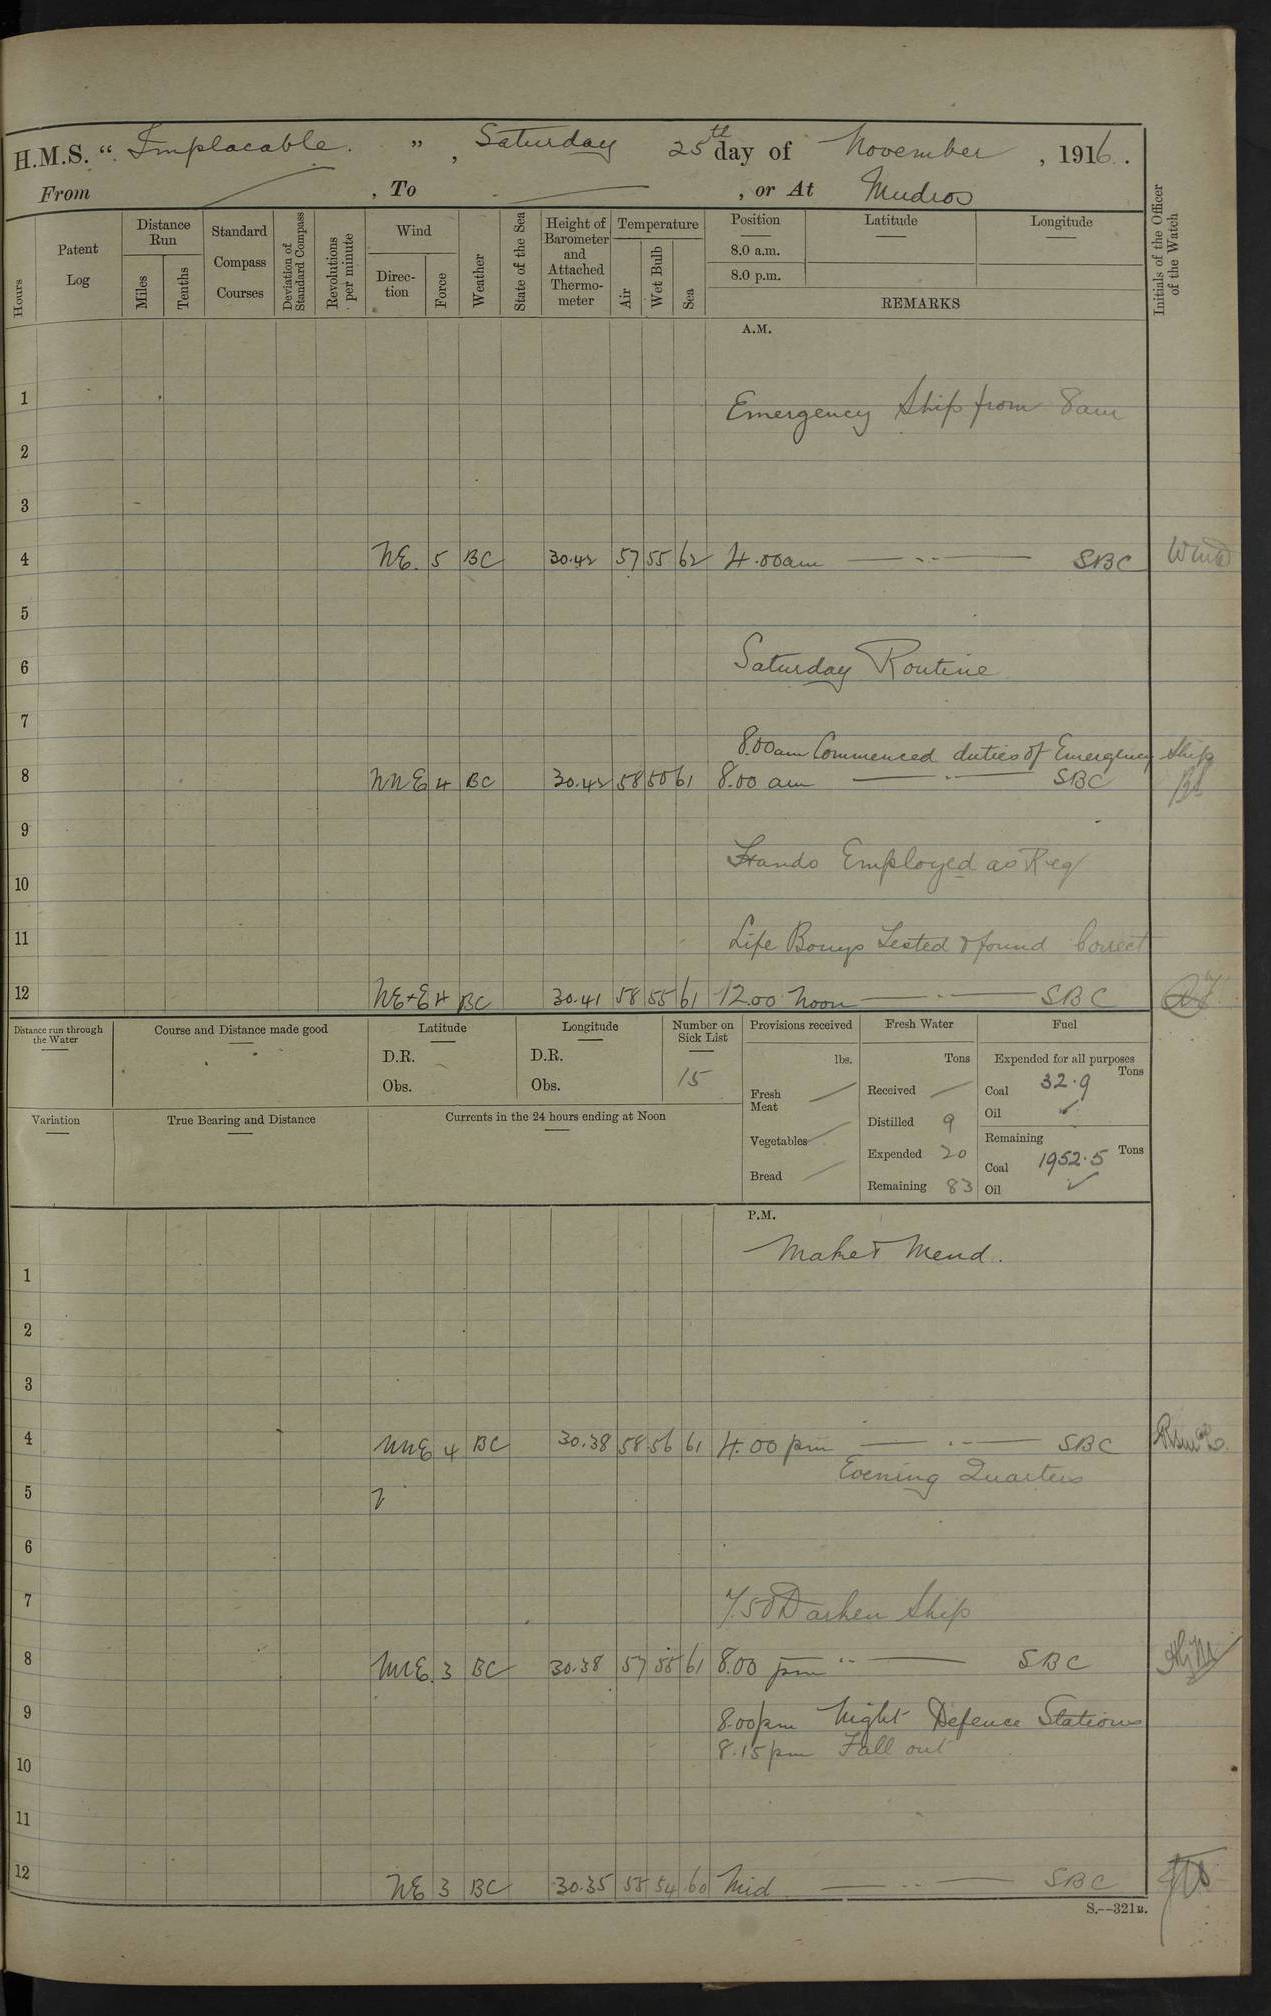 H.M.S. “ Implacable. ” , Saturday 25th day of November , 1916.
From , To , or At Mudros
Hours
Patent Log
Distance Run
Miles
Tenths
Standard Compass Courses
Deviation of Standard Compass
Revolutions per minute
Wind
Direction
Force
Weather
State of the Sea
Height of Barometer and Attached Thermometer
Temperature
Air
Wet Bulb
Sea
Position Latitude Longitude
8.0 a.m.
8.0 p.m.
REMARKS
Initials of the Officer of the Watch
A.M.
1 Emergency Ship from 8am
2
3
4 NE. 5 BC 30.42 57 55 62 4.00am SBC
5
6 Saturday Routine
7
8.00am Commenced duties of Emergency Ship
8 NNE 4 BC 30.42 58 50 61 8.00 am SBC
9
Hands Employed as Req
10
11 Life Bouys Tested & found Correct
12 NE+E 4 BC 30.41 58 55 61 12.00 Noon SBC
Distance run through the Water
Course and Distance made good
Latitude
D.R.
Obs.
Longitude
D.R.
Obs.
Number on Sick List
15
Provisions received
lbs.
Fresh Meat
Vegetables
Bread
Fresh Water
Tons
Received
Distilled 9
Expended 20
Remaining 83
Fuel
Expended for all purposes
Tons
Coal 32.9
Oil
Remaining
Coal 1952.5 Tons
Oil
Variation
True Bearing and Distance
Currents in the 24 hours ending at Noon
P.M.
Make & Mend.
1
2
3
4 NNE 4 BC 30.38 58 56 61 4.00 pm SBC
Evening Quarters
5
6
7 7.50 Darken Ship
8 NNE. 3 BC 30.38 57 55 61 8.00 pm SBC
9 8.00pm Night Defence Stations
8.15pm Fall out
10
11
12 NE 3 BC 30.35 55 54 60 Mid SBC
S.--321B.